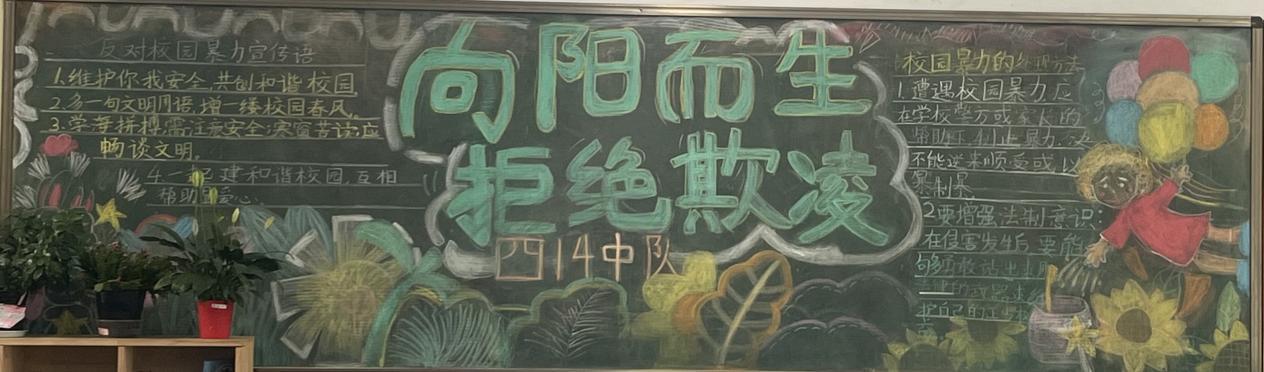 反对校园暴力宣传语
1.维护你我安全,共创和谐校园
2.多一句文明用语,增一缕校园春风。
3.学要拼搏,需注意安全;寒窗苦读,应
畅谈文明。
4.一起建和谐校园,互相
帮助显爱心。
向阳而生
拒绝欺凌
四14中队
校园暴力的
1.遭遇校园暴力,应
在学校学方或家长的
制止暴力,
不能逆来顺受或以
暴制暴
2要增强法制意识:
在侵害发生后,要能
够勇敢站出来